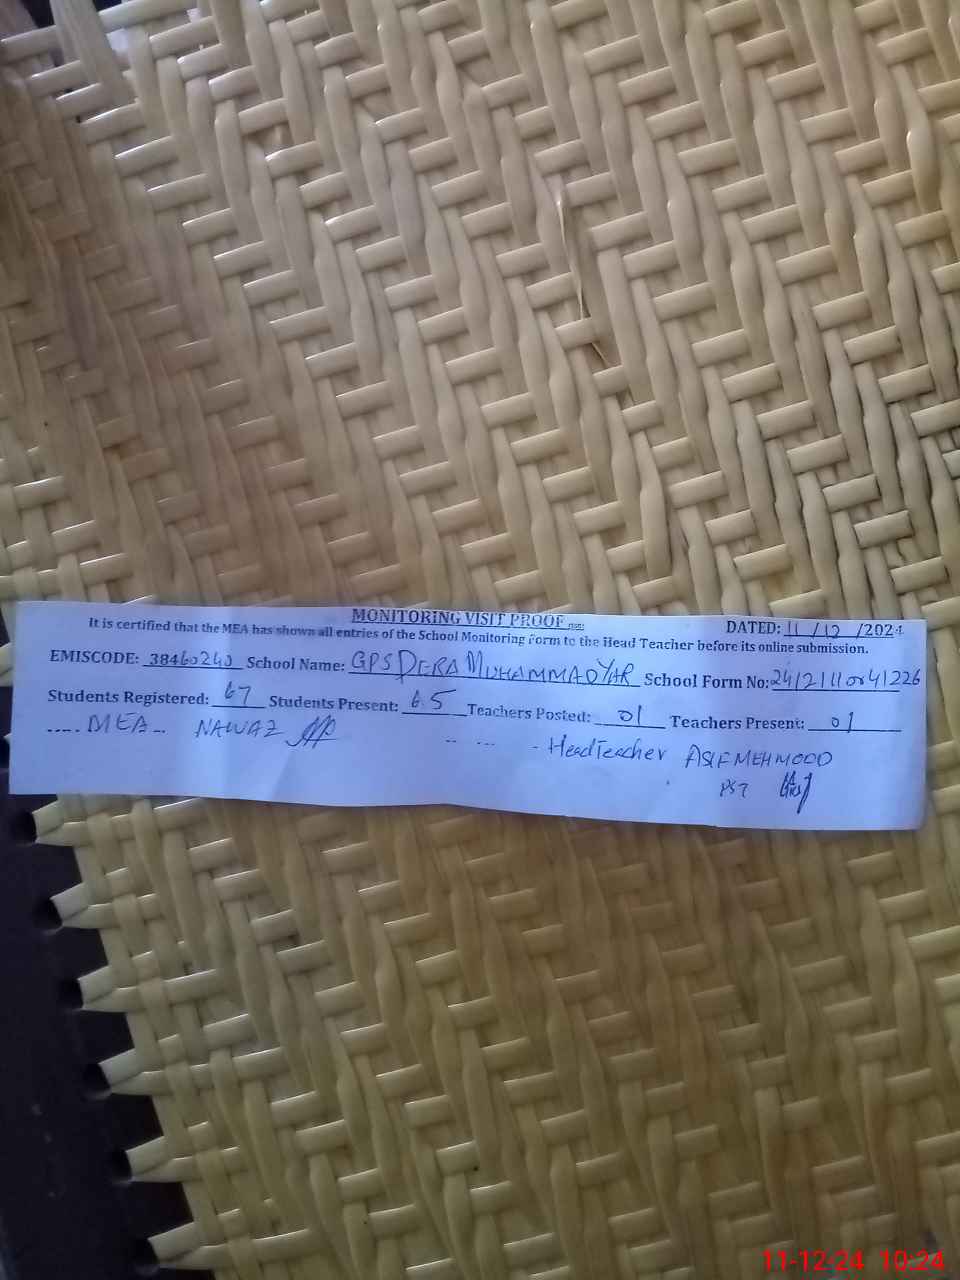 MONITORING VISIT PROOF
DATED: 11/12/2024
It is certified that the MEA has shown all entries of the School Monitoring Form to the Head Teacher before its online submission.
EMISCODE: 38460240 School Name: GPS DERA MUHAMMAD YAR School Form No:
Students Registered: 67 Students Present: 65 Teachers Posted: 01 Teachers Present: 01
..... MEA ... NAWAZ .. ... . Headteacher ASIF MEHMOOD
PST
11-12-24 10:24